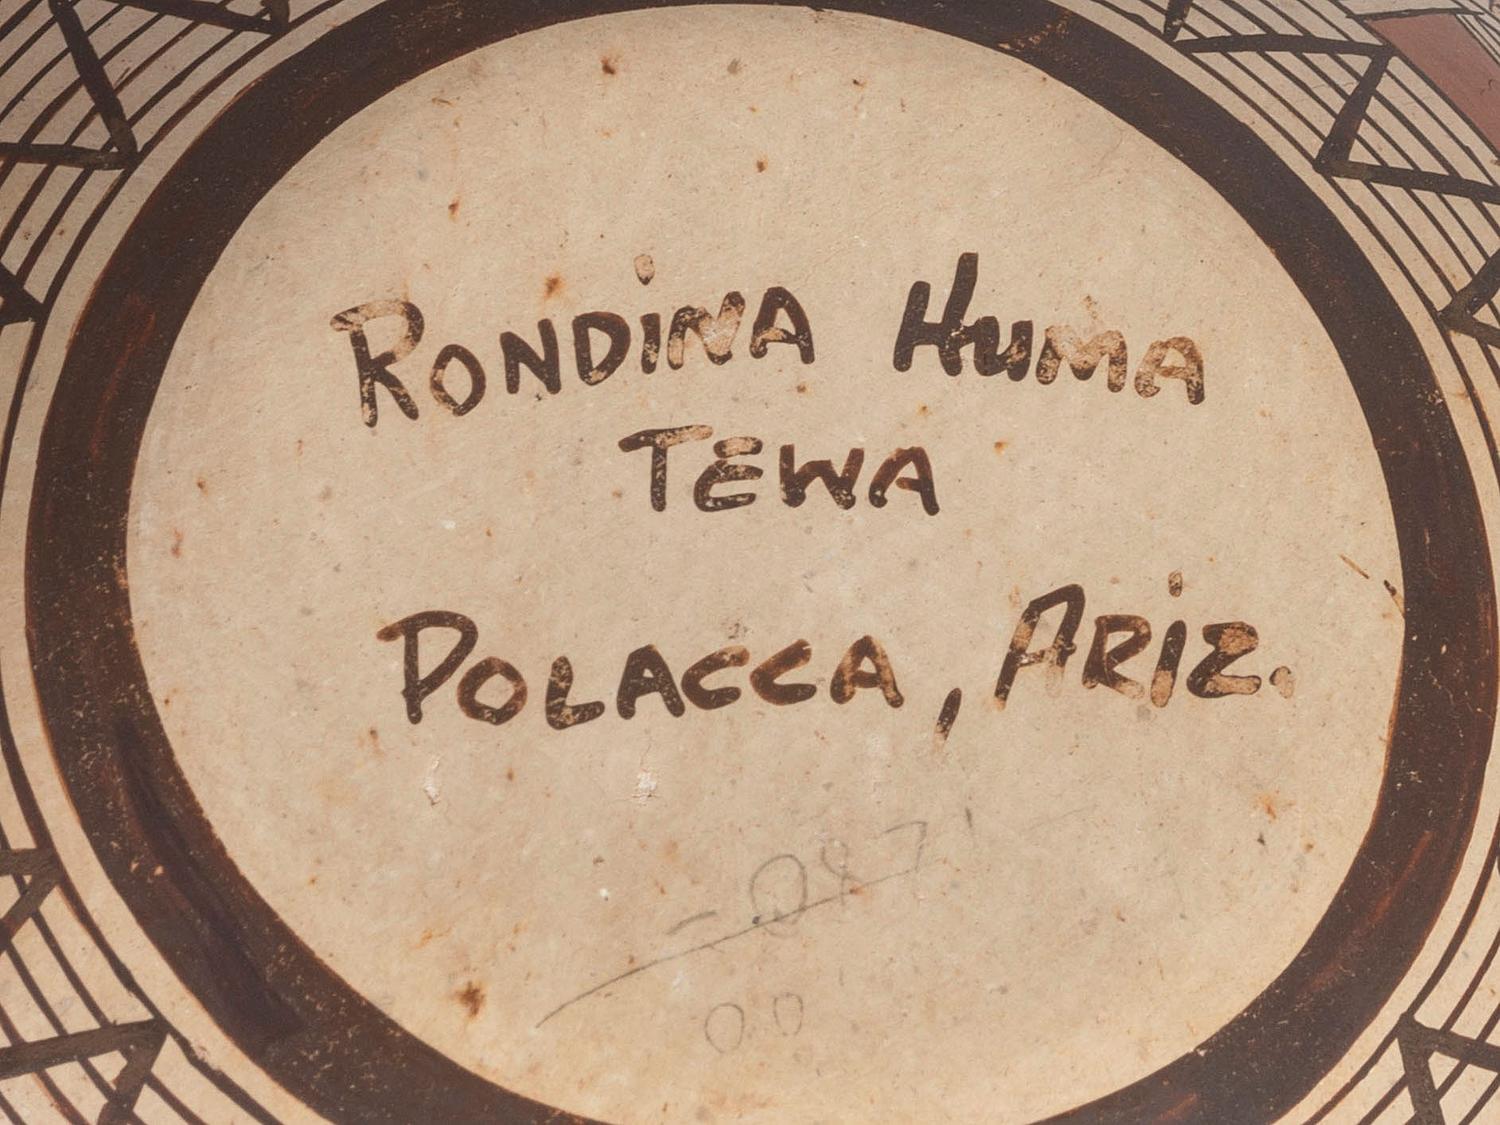 RONDINA HUMA
TEWA
POLACCA, ARIZ.